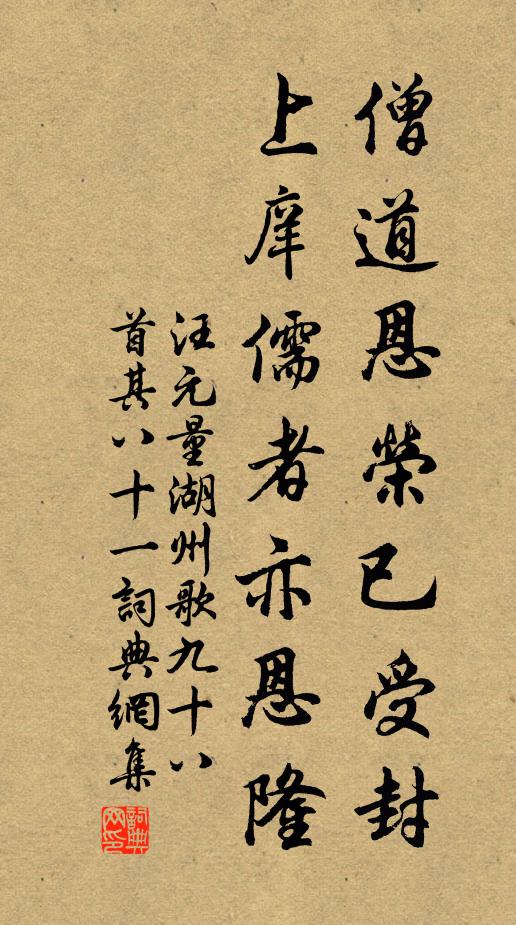 僧道恩榮已受封
上庠儒者亦恩隆
汪元量湖州歌九十八
首其八十一詞典網集
詞典
网印